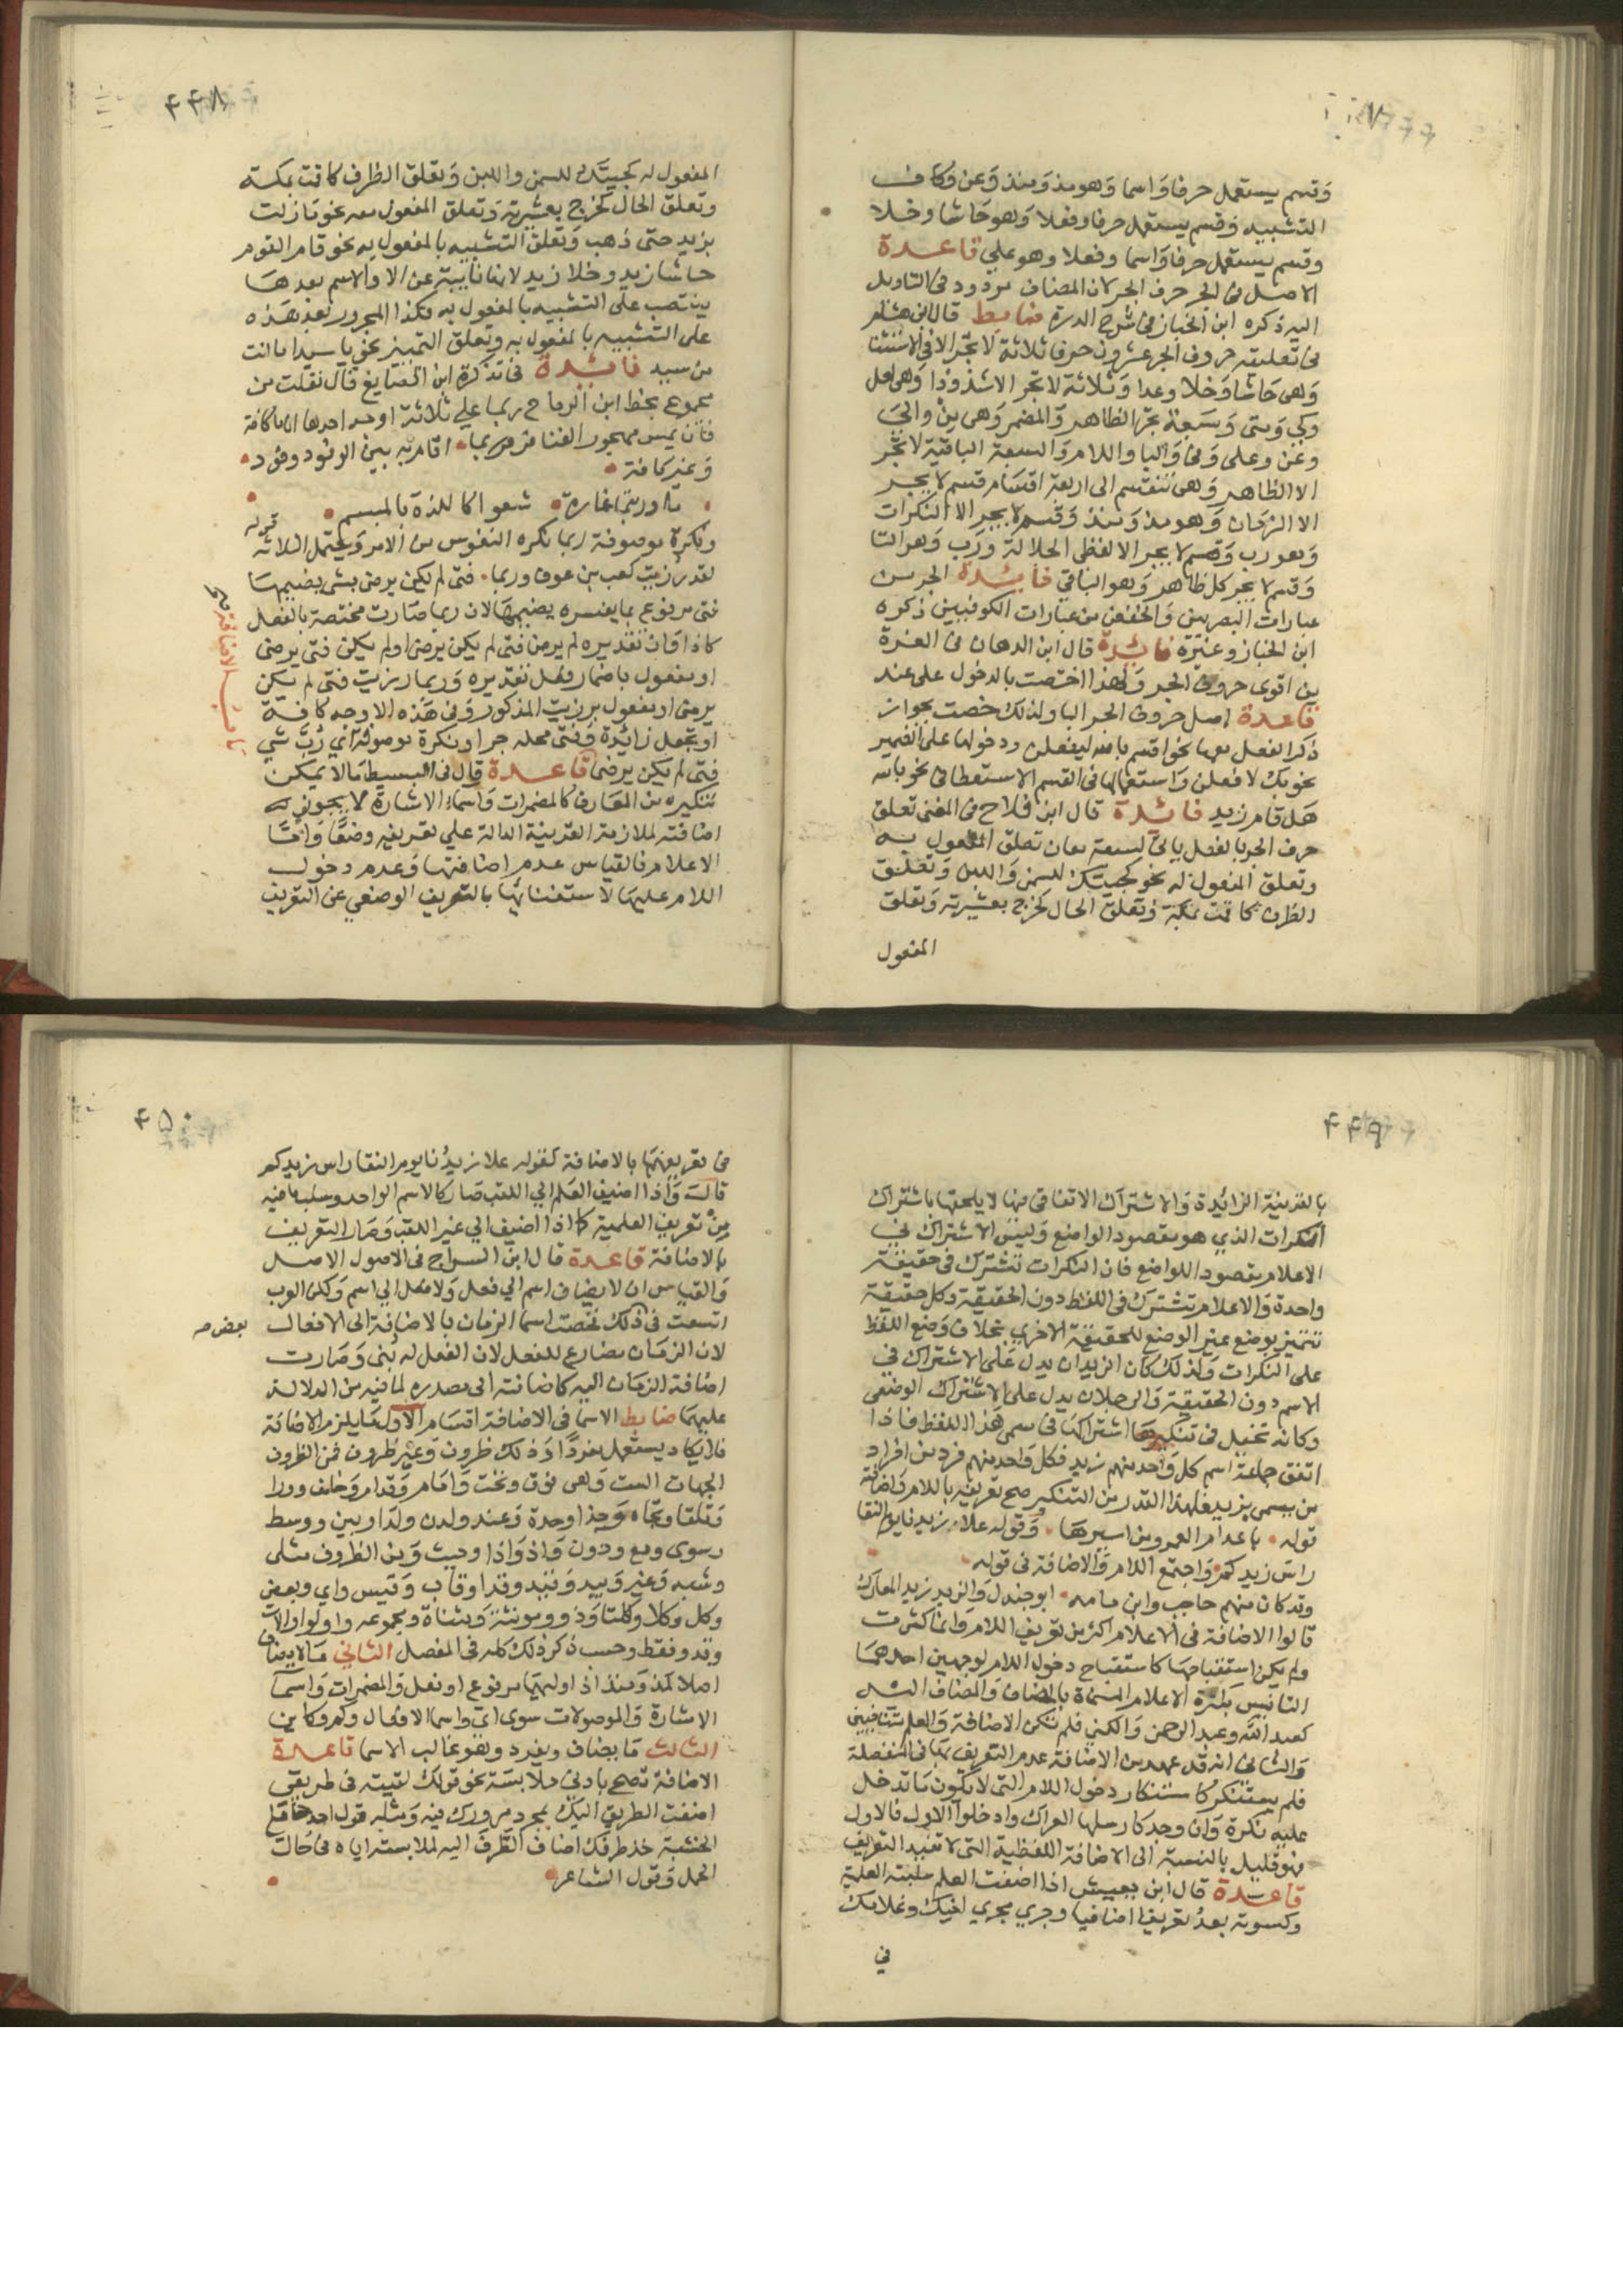 وقسم يستعمل حرفا واسما وهو مذ ومنذ وعن وكاف
التشبيه وقسم يستعمل حرفا وفعلا وهو حاشا وخلا
وقسم يستعمل حرفا واسما وفعلا وهو على قاعدة
الاصل في الجر حرف الجر لان المضاف مردود في التاويل
اليه ذكره ابن الخباز في شرح الدرة ضابط قال ابن هشام
في تعليقه حروف الجر عشرون حرفا ثلاثة لا تجر الا في الاستثنا
وهي حاشا وخلا وعدا وثلاثة لا تجر الا شذوذا وهي لعل
وكي ومتى وسبعة تجر الظاهر والمضمر وهي من والى
وعن وعلى وفي والبا واللام والسبعة الباقية لا تجر
الا الظاهر وهي تنقسم الى اربعة اقسام قسم لا يجر
الا الزمان وهو مذ ومنذ وقسم لا يجر الا النكرات
وهو رب وقسم لا يجر الا لفظي الجلالة ورب وهو التا
وقسم لا يجر كل ظاهر وهو الباقي فائدة الجر من
عبارات البصريين والخفض من عبارات الكوفيين ذكره
ابن الخباز وغيره فائدة قال ابن الدهان في الغرة
من اقوى حروف الجر ولهذا اختصت بالدخول على عند
قاعدة اصل حروف الجر البا ولذلك خصت بجواز
ذكر الفعل معها نحو اقسم بالله ليفعلن ودخولها على الضمير
نحو بك لافعلن واستعمالها في القسم الاستعطافي نحو بالله
هل قام زيد فائدة قال ابن فلاح في المغني تعلق
حرف الجر بالفعل ياتي لسبعة معان تعلق المفعول به
وتعلق المفعول له نحو جيتك للسمن واللبن وتعلق
الظرف كاقمت بمكة وتعلق الحال كخرج بعشيرته وتعلق
المفعول
٤٤٨
المفعول له كجيتك للسمن واللبن وتعلق الظرف كاقمت بمكة
وتعلق الحال كخرج بعشيرته وتعلق المفعول معه نحو ما زلت
بزيد حتى ذهب وتعلق التشبيه بالمفعول به نحو قام القوم
حاشا زيد وخلا زيد لانها نايبة عن الا والاسم بعدها
ينتصب على التشبيه بالمفعول به فكذا المجرور بعد هذه
على التشبيه بالمفعول به وتعلق التمييز نحو يا سيدا ما انت
من سيد فائدة في تذكرة ابن الصايغ قال نقلت من
مجموع بخط ابن الرماح ربما على ثلاثة اوجه احدها ان ما كافة
فان يمس مهجور الفنا فربما اقام به بعد الوفود وفود
وغير كافة
ما وربتما غارة شعوا كاللذعة بالميسم
ونكرة موصوفة ربما تكره النفوس من الامر ويحتمل الثلاثة قوله
لقد رزيت كعب بن عوف وربما فتى لم يكن يرضى بشي يضيمها
فتى مرفوع بما يفسره يضيمها لان ربما صارت مختصة بالفعل
كاذا وان تقديره لم يرض فتى لم يكن يرضى او لم يكن فتى يرضى
او مفعول باضمار فعل تقديره وربما رزيت فتى لم يكن
يرضى او مفعول برزيت المذكور وفي هذه الاوجه كافة
او تجعل زائدة وفتى محله جر او نكرة موصوفة اي رب شي
فتى لم يكن يرضى قاعدة قال في البسيط ما لا يمكن
تنكيره من المعارف كالمضمرات واسماء الاشارة لا يجوز
اضافته لملازمة القرينة الدالة على تعريفه وضعا واما
الاعلام فالقياس عدم اضافتها وعدم دخول
اللام عليها لاستغنائها بالتعريف الوضعي عن التعريف
باب الاضافة
٤٤٩
بالقرينة الزائدة والاشتراك الاتفاقي فيها لا يلحقها باشتراك
النكرات الذي هو مقصود الواضع وليس الاشتراك في
الاعلام مقصود اللواضع فان النكرات تشترك في حقيقة
واحدة والاعلام تشترك في اللفظ دون الحقيقة وكل حقيقة
تتميز بوضع غير الوضع للحقيقة الاخرى بخلاف وضع اللفظ
على النكرات ولذلك كان الزيدان يدل على الاشتراك في
الاسم دون الحقيقة والرجلان يدل على الاشتراك الوضعي
وكانه تخيل في تنكيرها اشتراكها في مسمى هذا اللفظ فاذا
اتفق جماعة اسم كل واحد منهم زيد فكل واحد منهم فرد من افراد
من يسمى بزيد فلهذا القدر من التنكير صح تعريفه باللام واضافته
قوله باعد ام العمرو من اسيرها وقوله علا زيدنا يوم النقا
راس زيدكم واجتمع اللام والاضافة في قوله
وقد كان منهم حاجب وابن مامه ابو جندل والزيد زيد المعارك
قالوا الاضافة في الاعلام اكثر من تعريف اللام وانما كثرت
ولم يكن استقباحها كاستقباح دخول اللام لوجهين احدهما
التانيس بكثرة الاعلام المسماة بالمضاف والمضاف اليه
كعبد الله وعبد الرحمن والكنى فلم تكن الاضافة والعلم متنافيين
والثاني انه قد عهد من الاضافة عدم التعريف بها في المنفصلة
فلم يستنكر كاستنكار دخول اللام التي لا يكون ما تدخل
عليه نكرة وان وجد كارسلها العراك وادخلوا الاول فالاول
فهو قليل بالنسبة الى الاضافة اللفظية التي لا تفيد التعريف
قاعدة قال ابن يعيش اذا اضفت العلم سلبته العلمية
وكسوته بعد تعريفا اضافيا وجرى مجرى اخيك وغلامك
في
٤٥٠
في تعريفهما بالاضافة كقوله علا زيدنا يوم النقا راس زيدكم
قال واذا اضيف العلم الى اللقب صار كالاسم الواحد وسلب ما فيه
من تعريف العلمية كما اذا اضيف الى غير اللقب وصار التعريف
بالاضافة قاعدة قال ابن السراج في الاصول الاصل
والقياس ان لا يضاف اسم الى فعل ولا فعل الى اسم ولكن العرب
اتسعت في ذلك فخصت اسما الزمان بالاضافة الى الافعال
بعض صح
لان الزمان مضارع للفعل لان الفعل له بني وصارت
اضافة الزمان اليه كاضافته الى مصدره لما فيه من الدلالة
عليهما ضابط الاسما في الاضافة اقسام الاول ما يلزم الاضافة
فلا يكاد يستعمل مفردا وذلك ظروف وغير ظروف فمن الظروف
الجهات الست وهي فوق وتحت وامام وقدام وخلف وورا
وتلقا وتجاه وحذا وحدة وعند ولدن ولدا وبين ووسط
وسوى ومع ودون واذ واذا وحيث ومن الظروف مثلى
وشبه وغير وبيد وقيد وقدا وقاب وقيس واي وبعض
وكل وكلا وكلتا وذو ومونثه ومثناه ومجموعه واولو اولات
وقد وقط وحسب ذكر ذلك كله في المفصل الثاني ما لا يضاف
اصلا كمذ ومنذ اذا وليهما مرفوع او فعل والمضمرات واسما
الاشارة والموصولات سوى اي واسما الافعال وكم وكاين
الثالث ما يضاف ويفرد وهو غالب الاسما قاعدة
الاضافة تصح بادنى ملابسة نحو قولك لقيته في طريقي
اضفت الطريق اليك بمجرد مرورك فيه ومثله قول احد حاملي
الخشبة خذ طرفك اضاف الطرف اليه لملابسته اياه في حال
الحمل وقول الشاعر